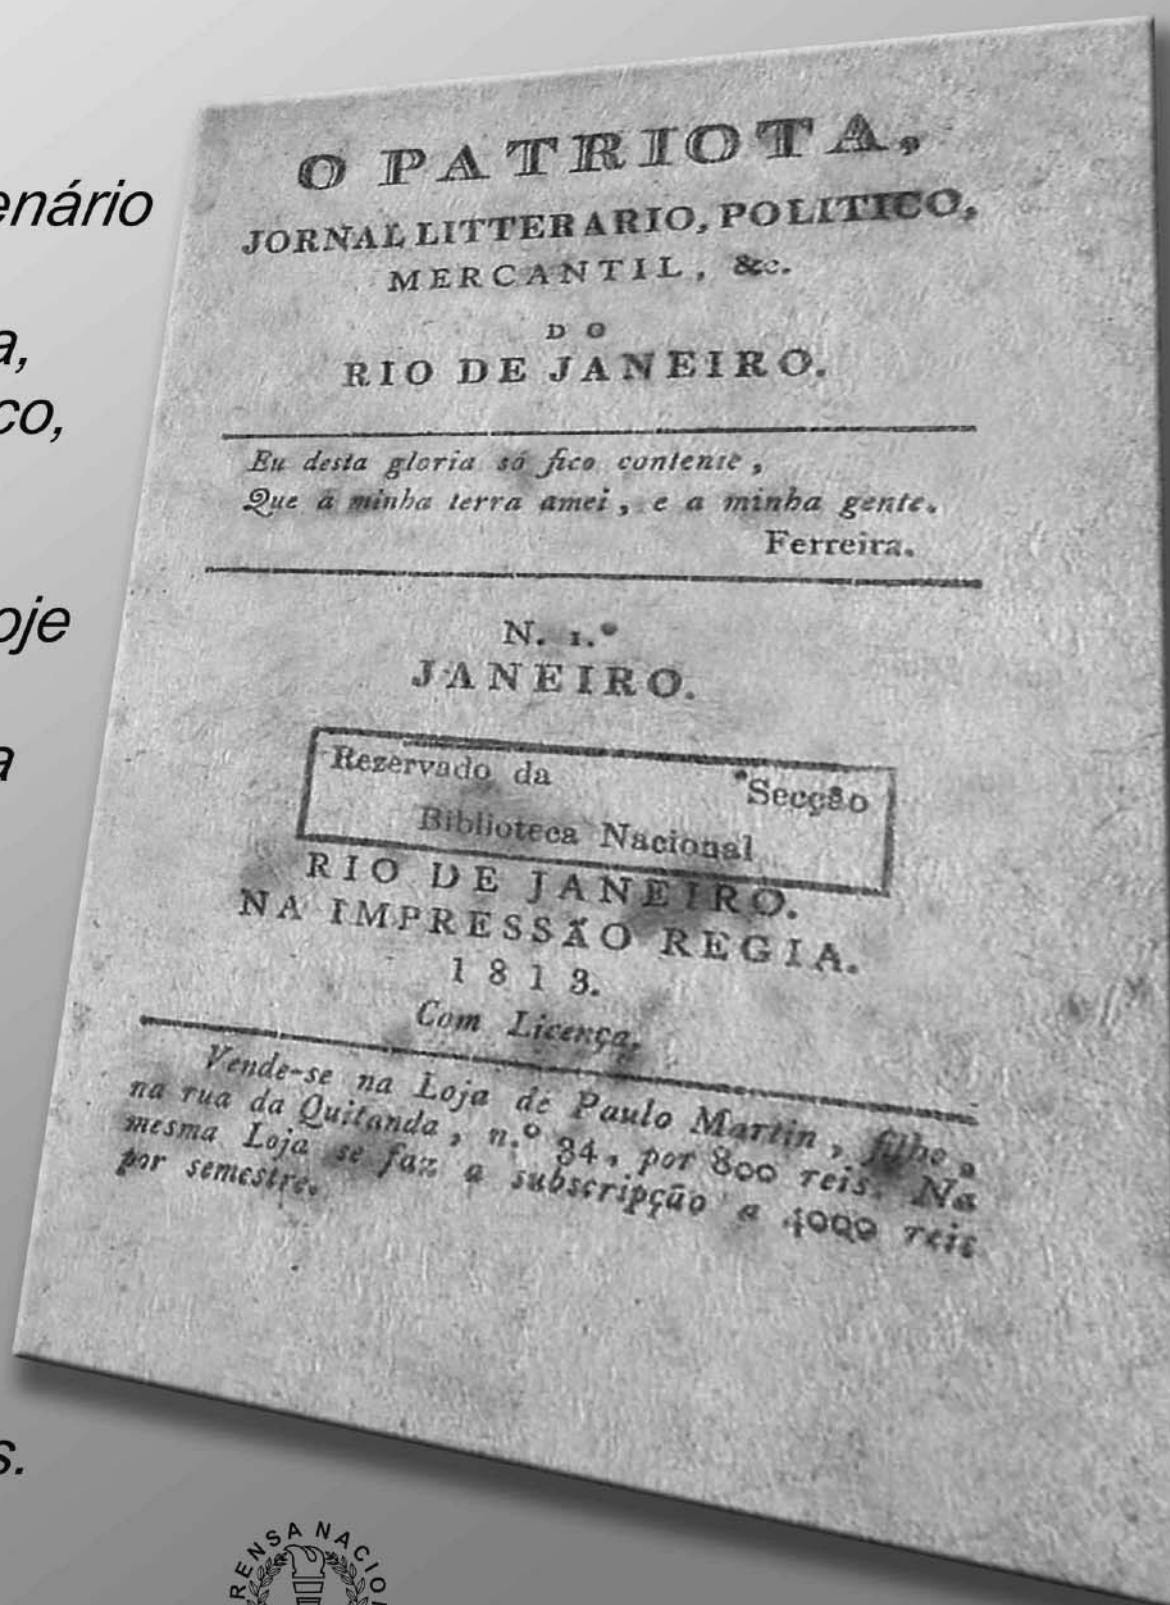 enário
a,
co,
oje
a
s.
O PATRIOTA,
JORNAL LITTERARIO, POLITICO,
MERCANTIL, &c.
DO
RIO DE JANEIRO.
Eu desta gloria só fico contente,
Que a minha terra amei, e a minha gente.
Ferreira.
N. 1.º
JANEIRO.
Rezervado da Secção
Biblioteca Nacional
RIO DE JANEIRO.
NA IMPRESSÃO REGIA.
1813.
Com Licença.
Vende-se na Loja de Paulo Martin, filho,
na rua da Quitanda, n.º 34, por 800 reis. Na
mesma Loja se faz a subscripção a 4000 reis
por semestre.
RENSA NACIO